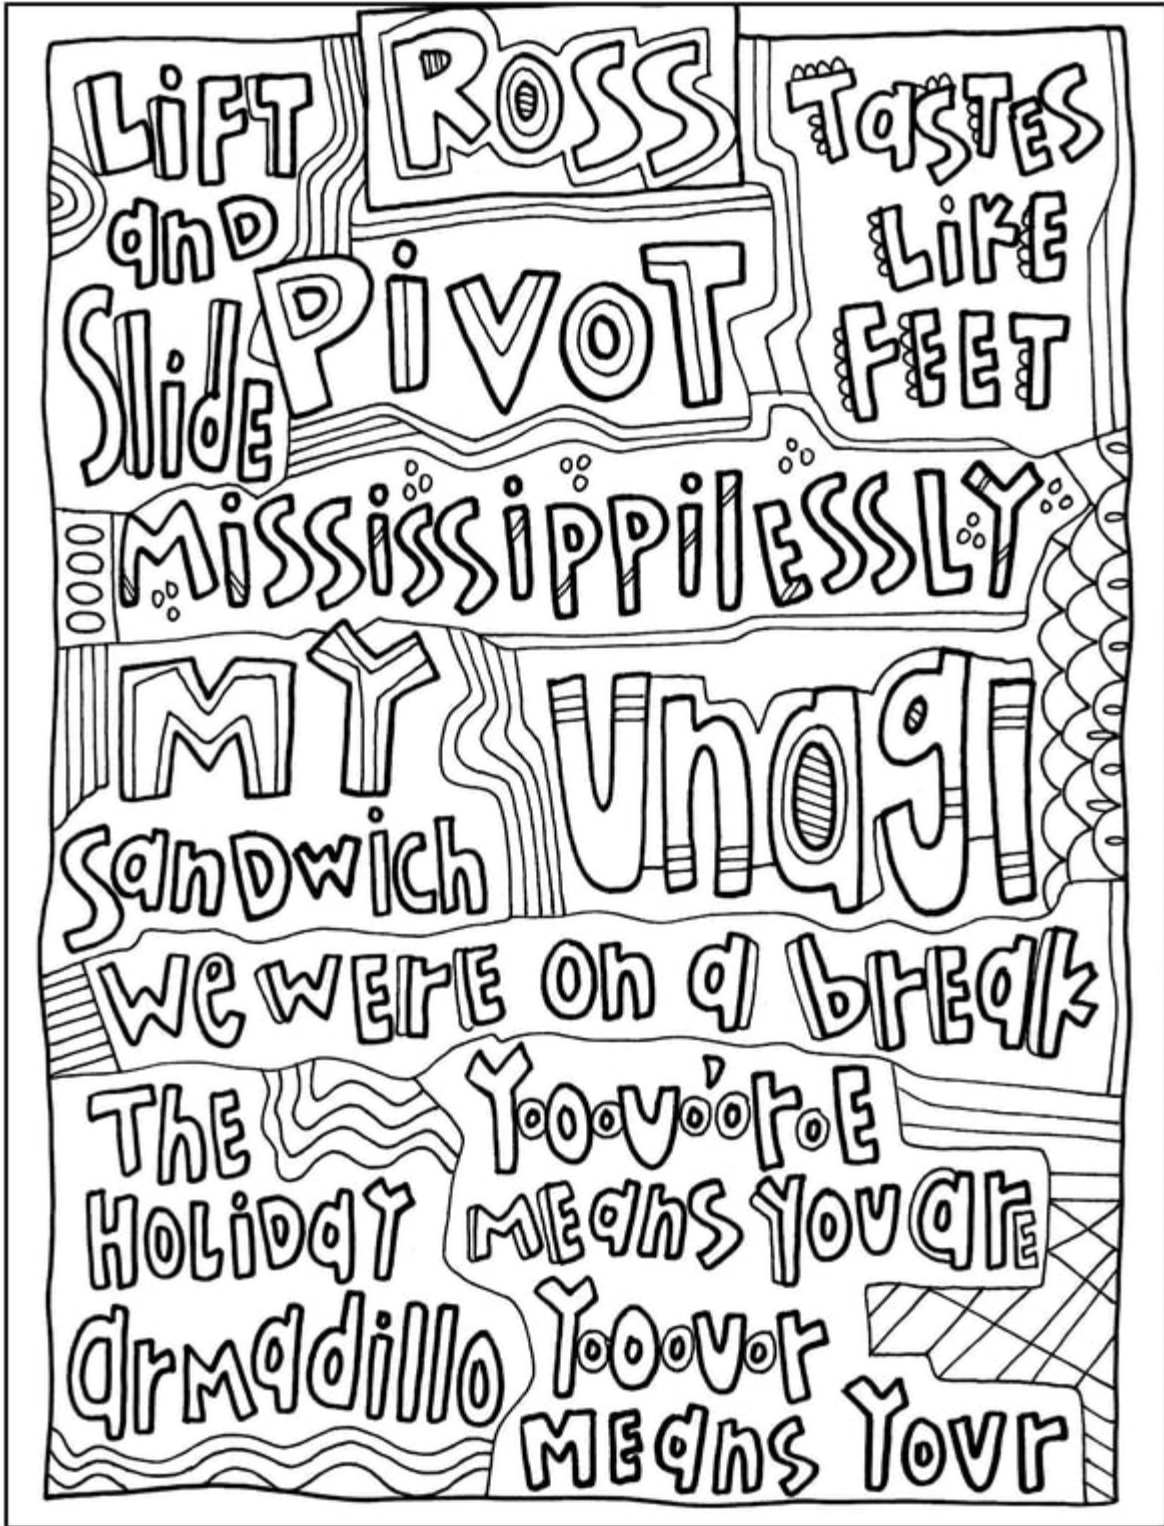 Ross
Lift
and
Slide
Pivot
Tastes
Like
Feet
Mississippilessly
My
Sandwich
Unagi
We were on a break
The
Holiday
Armadillo
You're
means you are
Your
means your